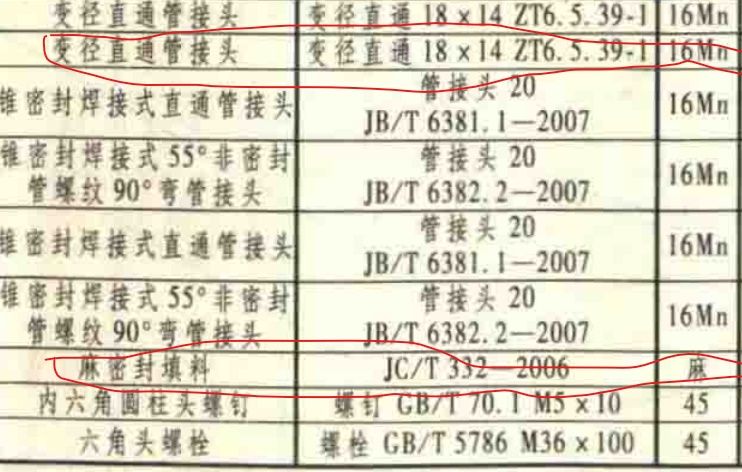 变径直通管接头 变径直通 18×14 ZT6.5.39-1 16Mn
变径直通管接头 变径直通 18×14 ZT6.5.39-1 16Mn
锥密封焊接式直通管接头 管接头 20 16Mn
JB/T 6381.1—2007
锥密封焊接式 55°非密封 管接头 20 16Mn
管螺纹 90°弯管接头 JB/T 6382.2—2007
锥密封焊接式直通管接头 管接头 20 16Mn
JB/T 6381.1—2007
锥密封焊接式 55°非密封 管接头 20 16Mn
管螺纹 90°弯管接头 JB/T 6382.2—2007
麻密封填料 JC/T 332—2006 麻
内六角圆柱头螺钉 螺钉 GB/T 70.1 M5×10 45
六角头螺栓 螺栓 GB/T 5786 M36×100 45